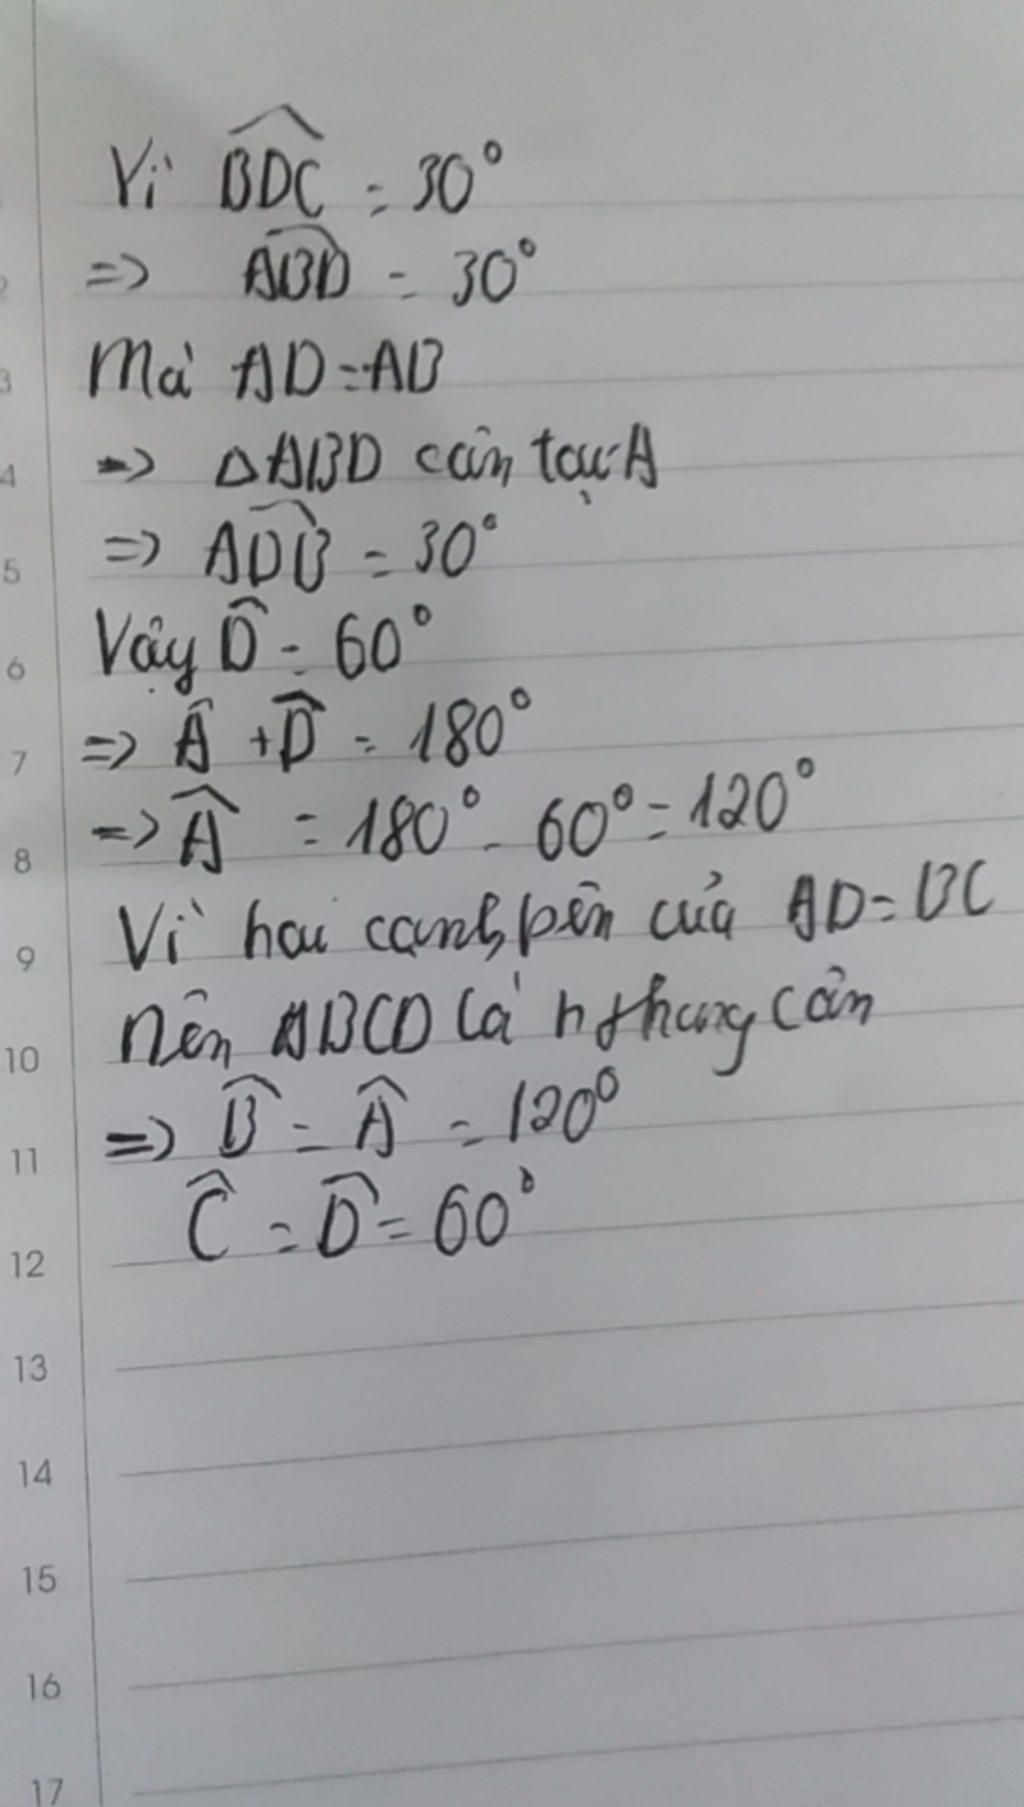 Vì BDC = 30°
=> ABD = 30°
Mà AD=AB
=> ΔABD cân tại A
=> ADB = 30°
Vậy D = 60°
=> A + D = 180°
=> A = 180° - 60° = 120°
Vì hai cạnh bên của AD = BC
Nên ABCD là h thang cân
=> B = A = 120°
C = D = 60°
2
3
4
5
6
7
8
9
10
11
12
13
14
15
16
17